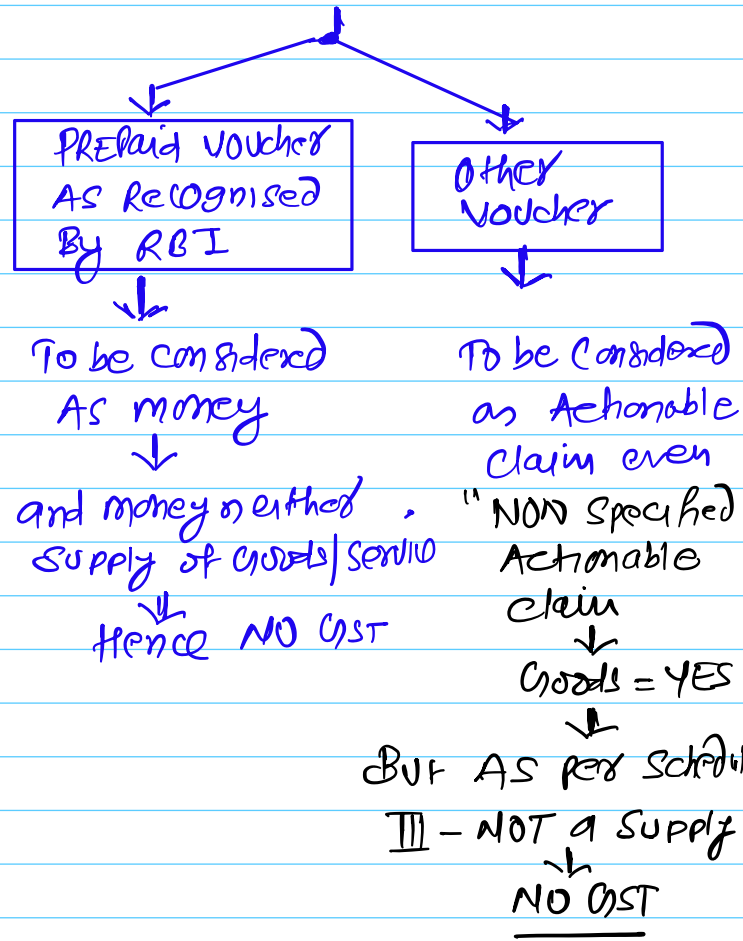 PREPaid Voucher
AS Recognised
By RBI
To be considered
AS money
and money neither
supply of Goods/Service
Hence NO GST
Other
Voucher
To be Considered
as Actionable
Claim even
"NON Specified
Actionable
Claim
Goods = YES
But AS per Schedul
III - NOT a Supply
NO GST